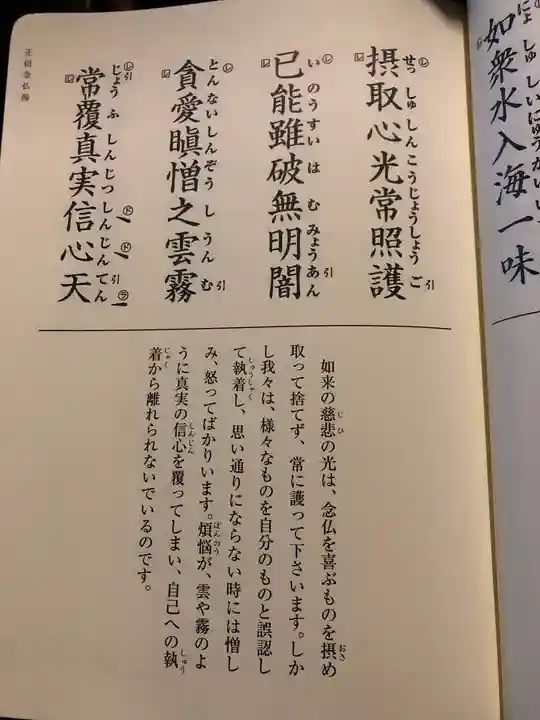 如衆水入海一味
摂取心光常照護
せっしゅしんこうじょうしょうご
已能雖破無明闇
いのうすいはむみょうあん
貪愛瞋憎之雲霧
とんないしんぞうしうんむ
常覆真実信心天
じょうふしんじつしんじんてん
如来の慈悲の光は、念仏を喜ぶものを摂め
取って捨てず、常に護って下さいます。しか
し我々は、様々なものを自分のものと誤認し
て執着し、思い通りにならない時には憎し
み、怒ってばかりいます。煩悩が、雲や霧のよ
うに真実の信心を覆ってしまい、自己への執
着から離れられないでいるのです。
正信念仏偈